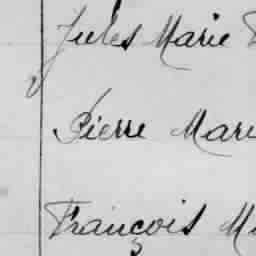 Jules Marie
Pierre Mari
François M